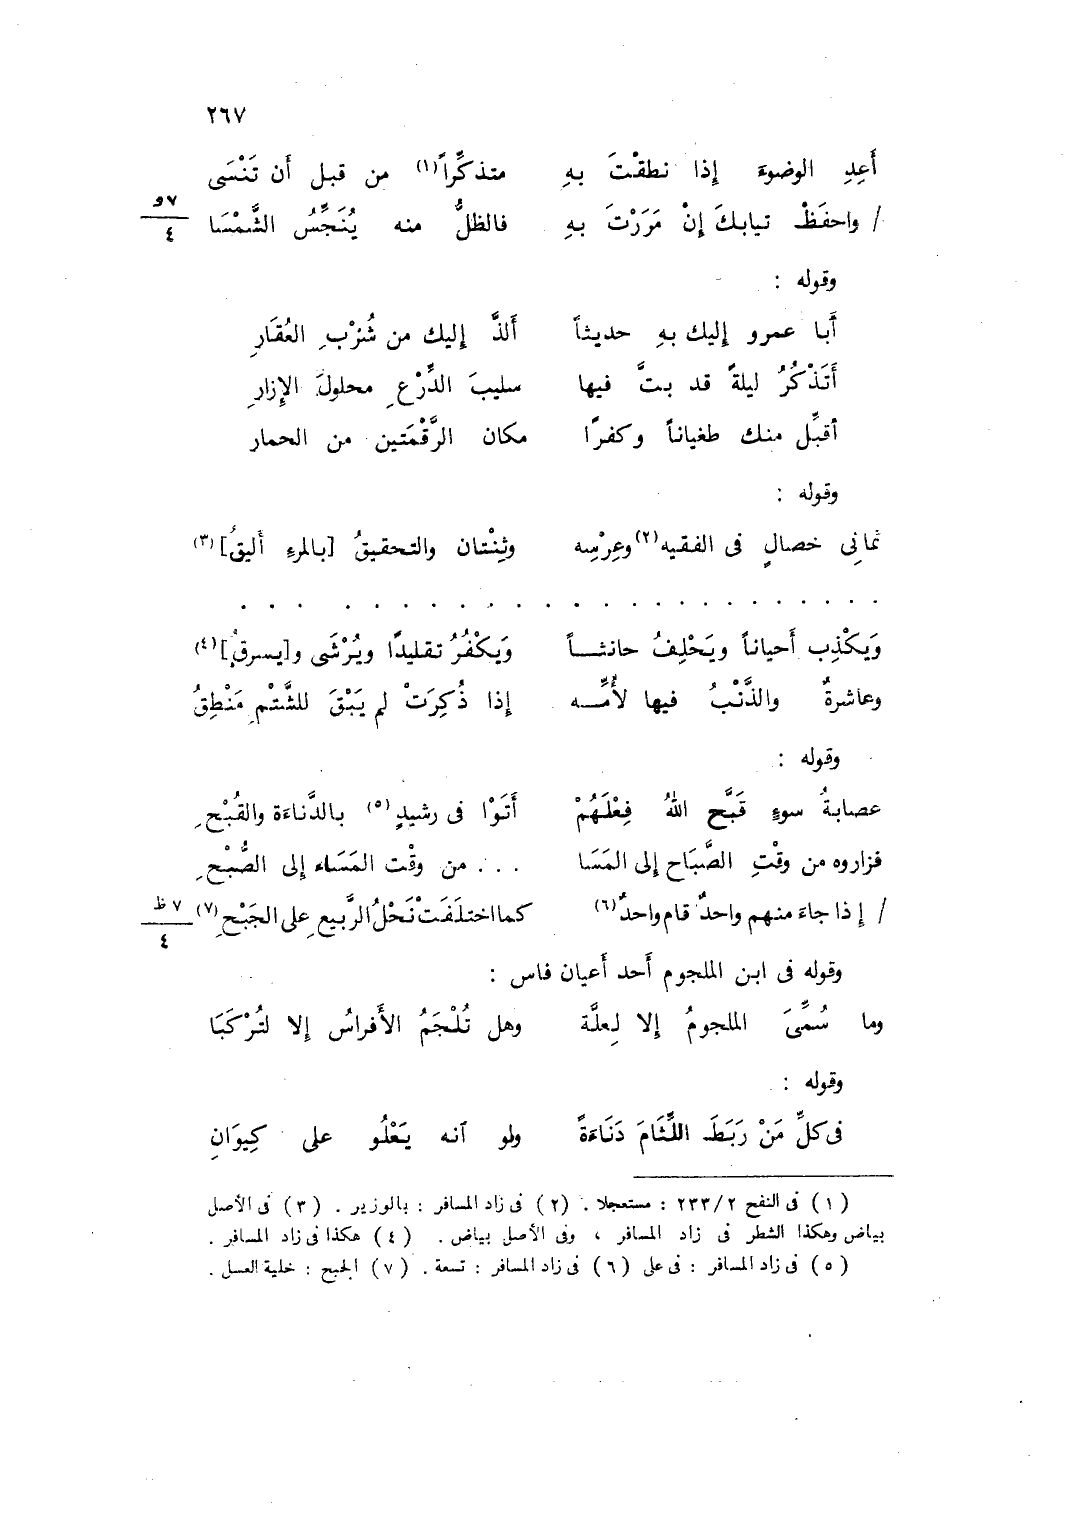 ٢٦٧
أَعِدِ الوضوءَ إِذا نطقْتَ بهِ متذكِّراً(١) من قبل أَن تَنْسَى
/ واحفَظْ ثيابكَ إِنْ مَرَرْتَ بهِ فالظلُّ منه يُنَجِّسُ الشَّمْسَا
٧ و
٤
وقوله :
أَبا عمرو إِليك بهِ حديثاً أَلذَّ إِليك من شُرْبِ العُقَارِ
أَتَذْكُرُ ليلةً قد بتَّ فيها سليبَ الدِّرْعِ محلولَ الإِزارِ
أقبِّل منك طغياناً وكفرًا مكان الرَّقْمَتين من الحمار
وقوله :
ثمانى خصالٍ فى الفقيه(٢) وعِرْسِه وثِنْتان والتحقيقُ [بالمرءِ أَليقُ](٣)
. . . . . . . . . . . . . . . . . . . . . . .
وَيَكْذِب أَحياناً ويَحْلِفُ حانثــاً وَيَكْفُرُ تقليدًا ويُرْشَى و[يسرقُ](٤)
وعاشرةٌ والذَّنْبُ فيها لأُمِّــه إذا ذُكِرَتْ لم يَبْقَ للشَّتْمِ مَنْطِقُ
وقوله :
عصابةُ سوءٍ قَبَّح اللهُ فِعْلَهُمْ أَتَوْا فى رشيدٍ(٥) بالدَّناءَة والقُبْحِ
فزاروه من وقْتِ الصَّبَاح إِلى المَسَا . . . من وقْت المَسَاء إِلى الصُّبْحِ
/ إِذا جاءَ منهم واحدٌ قام واحدٌ(٦) كما اختلَفَتْ نَحْلُ الرَّبيعِ على الجَبْحِ(٧)
٧ ظ
٤
وقوله فى ابن الملجوم أَحد أَعيان فاس :
وما سُمِّىَ الملجومُ إلا لِعلَّة وهل تُلْجَمُ الأَفراسُ إلا لتُرْكَبَا
وقوله :
فى كلِّ مَنْ رَبَطَ اللِّثَامَ دَنَاءَةً ولو آنه يَعْلُو على كِيوَانِ
(١) فى النفح ٢/٢٣٣ : مستعجلا . (٢) فى زاد المسافر : بالوزير . (٣) فى الأصل
بياض وهكذا الشطر فى زاد المسافر ، وفى الأصل بياض . (٤) هكذا فى زاد المسافر .
(٥) فى زاد المسافر : فى على (٦) فى زاد المسافر : تسعة . (٧) الجبح : خلية العسل .